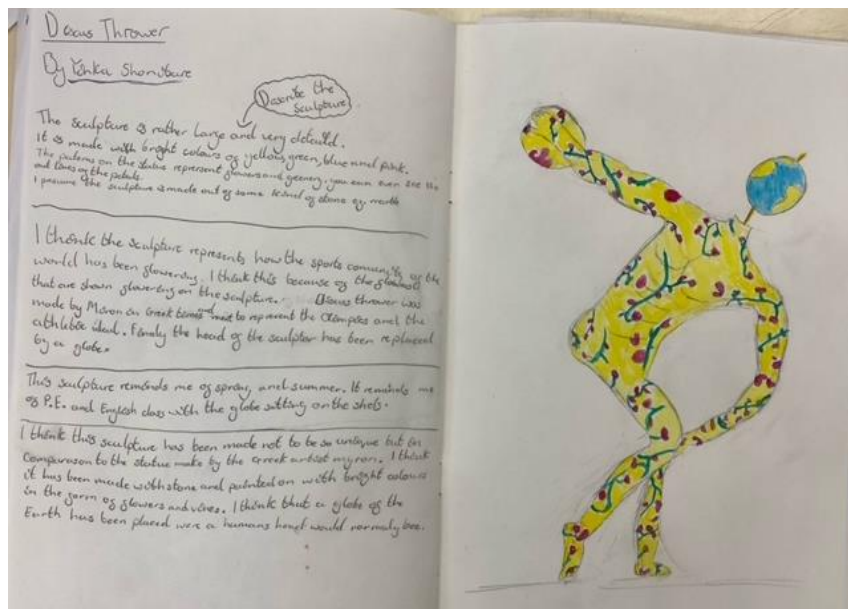 Discus Thrower
By Yinka Shonibare
Describe the
Sculpture
The sculpture is rather large and very detaild.
It is made with bright colours of yellow, green, blue and pink.
The paterns on the statue represent flowers and greenery. you can even see the
out lines of the petals.
I presume the sculpture is made out of some kind of stone or marble
I think the sculpture represents how the sports comunity of the
world has been flowering. I think this because of the flowers
that are shown flowering on the sculpture. Discus thrower was
made by Myron in Greek times and ment to represent the Olimpics and the
athletic ideal. Finaly the head of the sculptor has been replaced
by a globe.
This sculpture reminds me of spring and summer. It reminds me
of P.E. and English class with the globe sitting on the shelf.
I think this sculpture has been made not to be so unique but in
comparason to the statue make by the Greek artist myron. I think
it has been made with stone and painted on with bright colours
in the form of flowers and vines. I think that a globe of the
Earth has been placed were a humans head would normaly bee.